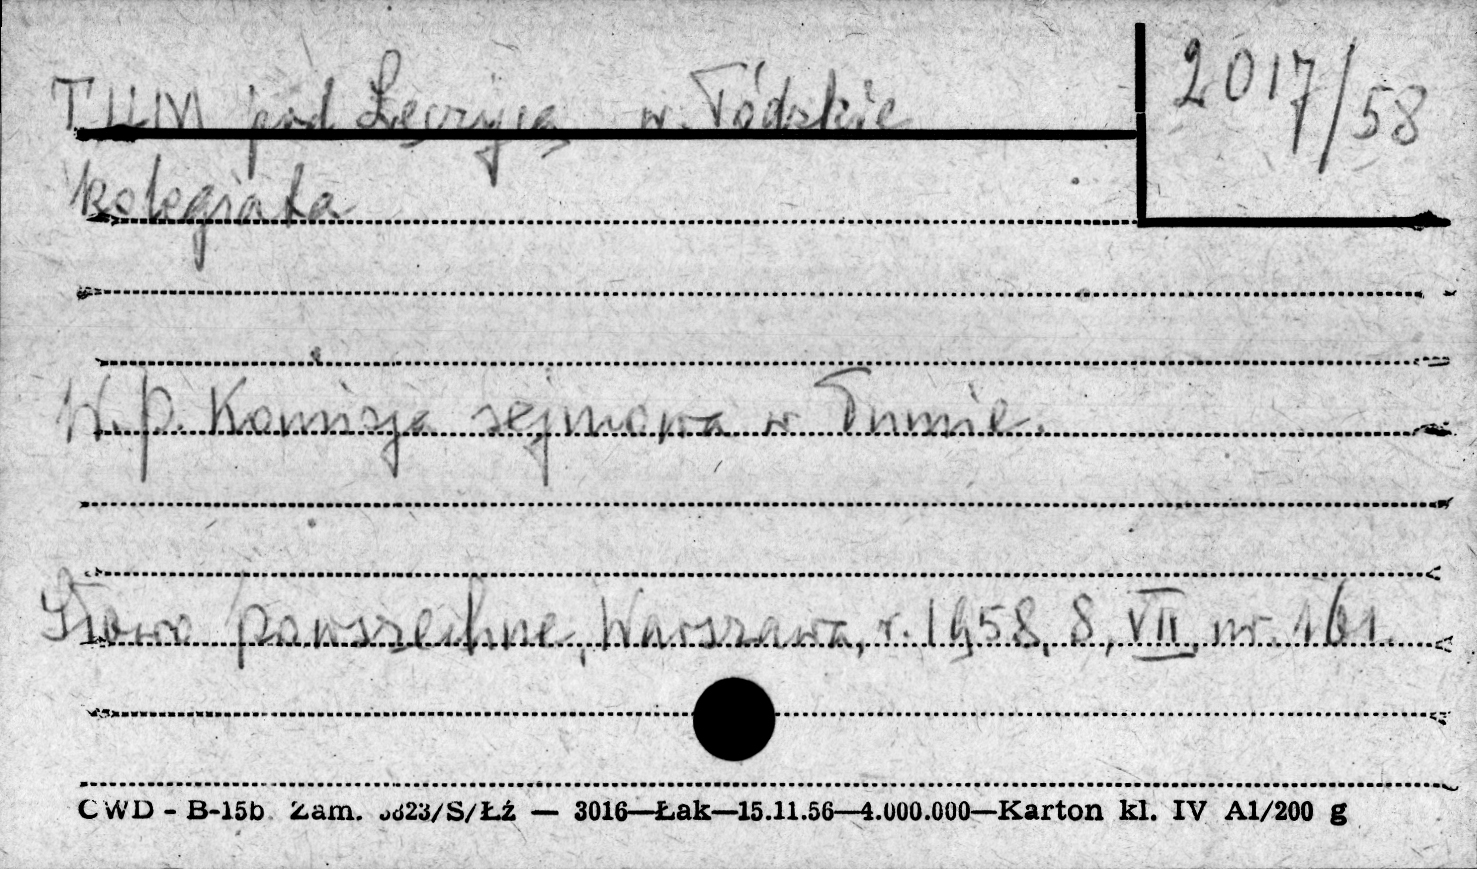 TUM pod Łęczycą w. Łódzkie
2017/58
kolegiata
W.p. Komisja sejmowa w Tumie.
Słowo powszechne, Warszawa, r. 1958, 8, VII, nr. 161.
CWD - B-15b Zam. 5823/S/Łź — 3016—Łak—15.11.56—4.000.000—Karton kl. IV A1/200 g